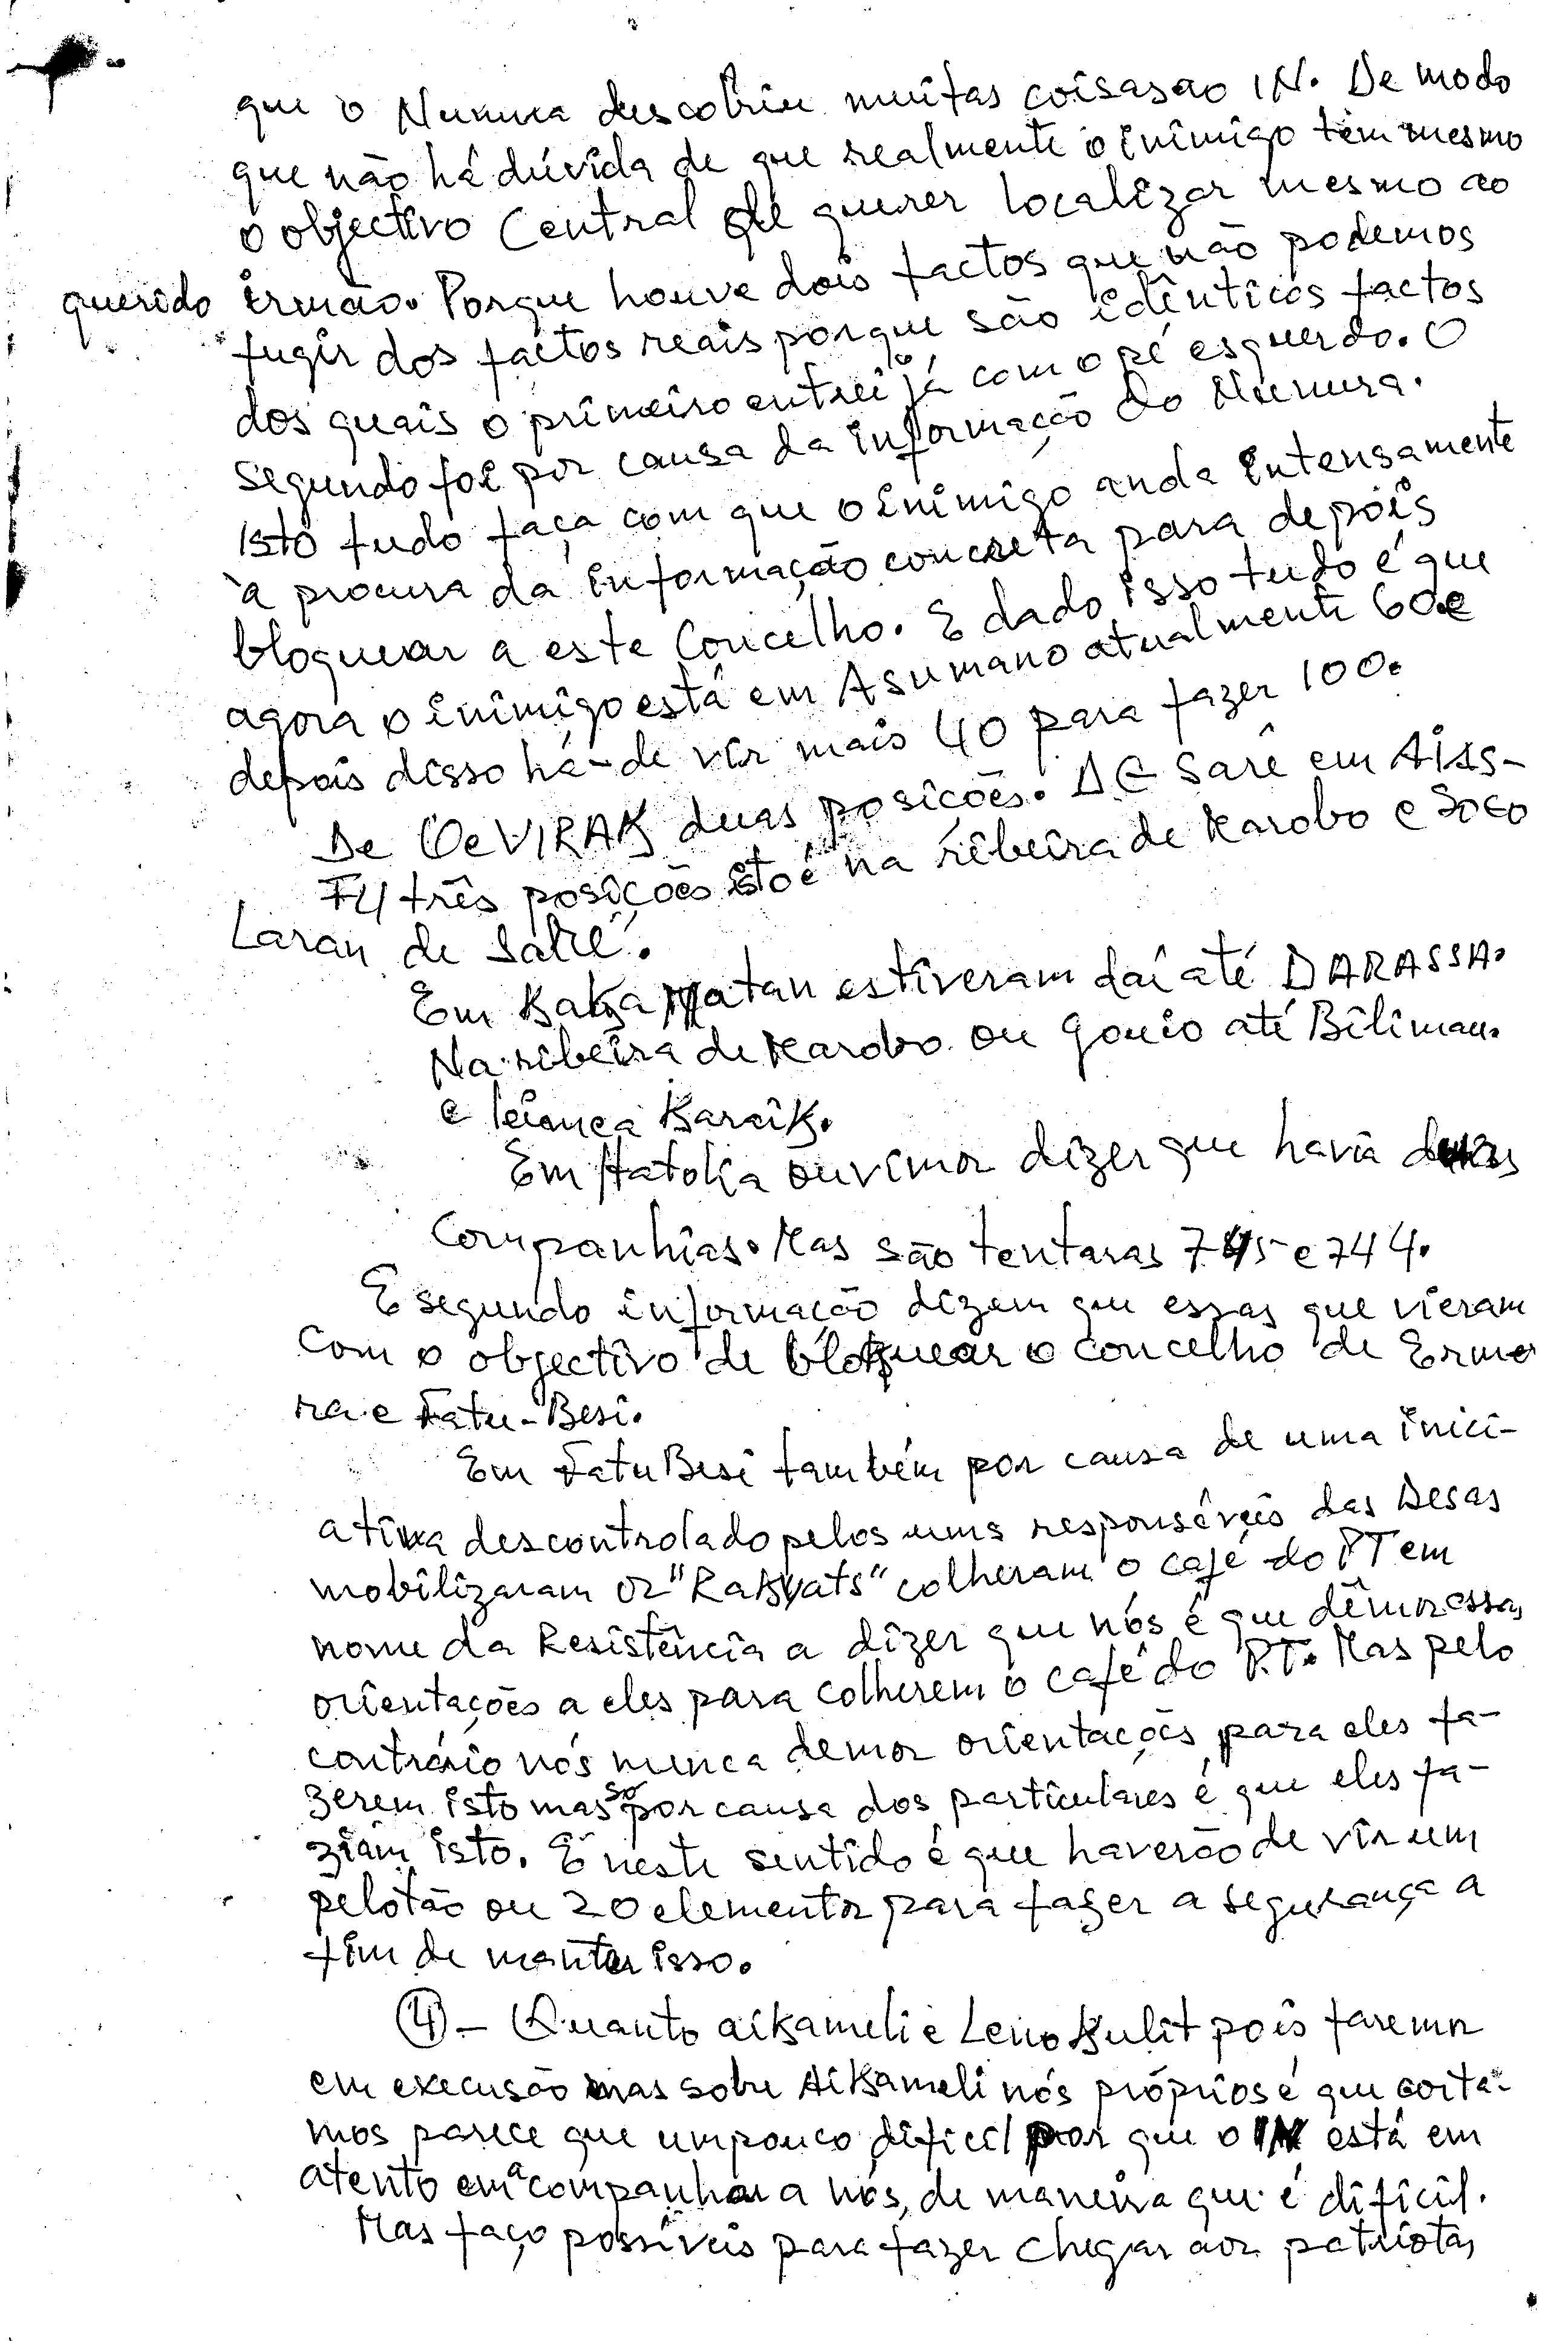 que o Nunura descobriu muitas coisas ao IN. De modo
que não há dúvida de que realmente o inimigo tem mesmo
o objectivo Central de querer localizar mesmo ao
querido irmão. Porque houve dois factos que não podemos
fugir dos factos reais porque são idênticos factos
dos quais o primeiro entrei já com o pé esquerdo. O
segundo foi por causa da informação do Nunura.
Isto tudo faça com que o inimigo anda intensamente
à procura da informação concreta para depois
bloquear a este Concelho. E dado isso tudo é que
agora o inimigo está em Asumano atualmente 60 e
depois disso há-de vir mais 40 para fazer 100.
De duas posições. De Saré em Aiss-
Fu três posições isto é na ribeira de Karobo e Soco
Laran de Saré.
Em Baka Matan estiveram daí até DARASSA.
Na ribeira de Karobo ou Gouio até Biliman.
e Karaik.
Em Hatolia ouvimos dizer que havia duas
Companhias. Mas são tentaras 745 e 744.
E segundo informação dizem que essas que vieram
Com o objectivo de bloquear o concelho de Erme
ra e Fatu-Besi.
Em Fatu Besi também por causa de uma inici-
ativa descontrolado pelos uns responsáveis das Desas
mobilizaram os "Rakyats" colheram o café do P.T em
nome da Resistência a dizer que nós é que dêmos essas
orientações a eles para colherem o café do P.T. Mas pelo
contrário nós nunca demos orientações para eles fa-
zerem isto mas só por causa dos particulares é que eles fa-
ziam isto. E neste sentido é que haverão de vir um
pelotão ou 20 elementos para fazer a segurança a
fim de manter isso.
4 - Quanto aikameli e Leno Kulit pois faremos
em execusão mas sobre Aikameli nós próprios é que corta-
mos parece que um pouco difícil por que o IN está em
atento em acompanhar a nós, de maneira que é difícil.
Mas faço possíveis para fazer chegar aos patriotas